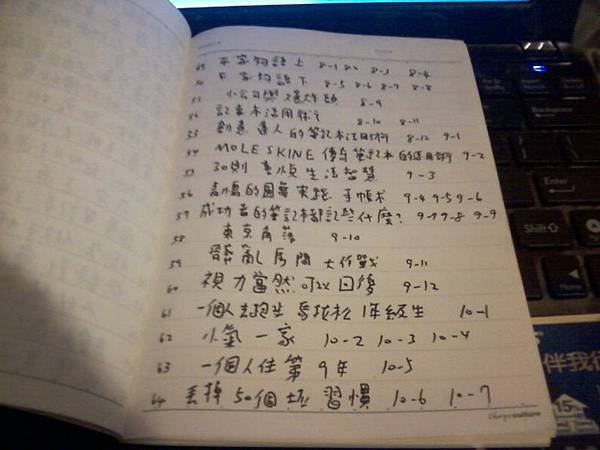 49 平家物語上 8-1 8-2 8-3 8-4
50 平家物語下 8-5 8-6 8-7 8-8
51 小公司與爆炸頭 8-9
52 記事本活用術 8-10 8-11
53 創意達人的筆記本活用術 8-12 9-1
54 MOLESKINE 傳奇筆記本的活用術 9-2
55 30則 生活智慧 9-3
56 的圓夢實踐手帳术 9-4 9-5 9-6
57 成功者的筆記本都記些什麼? 9-7 9-8 9-9
58 東京角落 9-10
59 髒亂房間大作戰 9-11
60 視力當然可以回復 9-12
61 一個人去跑步 馬拉松1年級生 10-1
62 小氣一家 10-2 10-3 10-4
63 一個人住第9年 10-5
64 丟掉50個壞習慣 10-6 10-7
Backspace
Enter
Shift
End
伴我
15